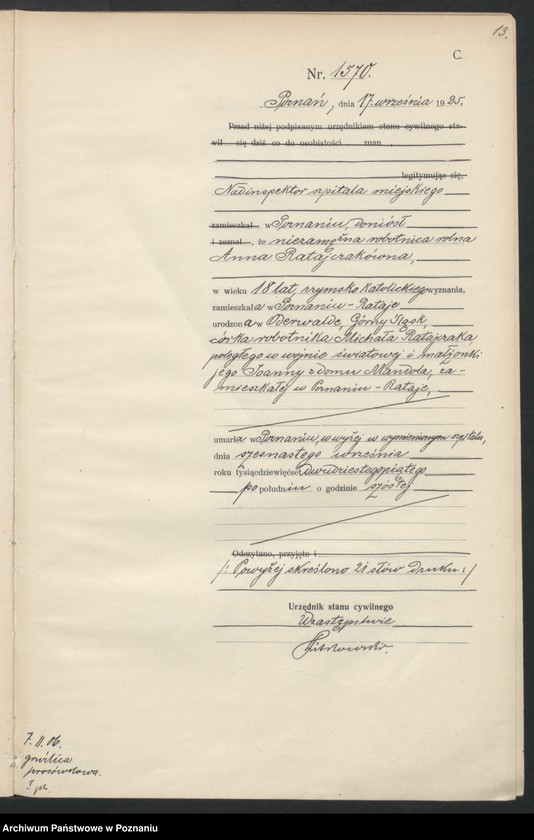 13.
C.
Nr. 1570.
Poznań, dnia 17. września 1925.
Przed niżej podpisanym urzędnikiem stanu cywilnego sta-
wił się dziś co do osobistości znan
legitymując się,
Nadinspektor szpitala miejskiego
zamieszkał w Poznaniu, doniósł
i zeznał, że niezamężna robotnica rolna
Anna Ratajczakówna,
w wieku 18 lat, rzymsko katolickiego wyznania,
zamieszkała w Poznaniu - Rataje
urodzona w Oderwalde, Górny Śląsk
córka robotnika Michała Ratajczaka
poległego w wojnie światowej i małżonki
jego Joanny z domu Mandola, za-
mieszkałej w Poznaniu - Rataje,
umarła w Poznaniu, w wyżej w wymienionym szpitalu,
dnia szesnastego września
roku tysiąc dziewięćset dwudziestego piątego
po południu o godzinie szóstej
Odczytano, przyjęto i
/: Powyżej skreślono 21 słów druku :/
Urzędnik stanu cywilnego
W zastępstwie
7. II. 06.
gruźlica
prosówkowa.
Archiwum Państwowe w Poznaniu